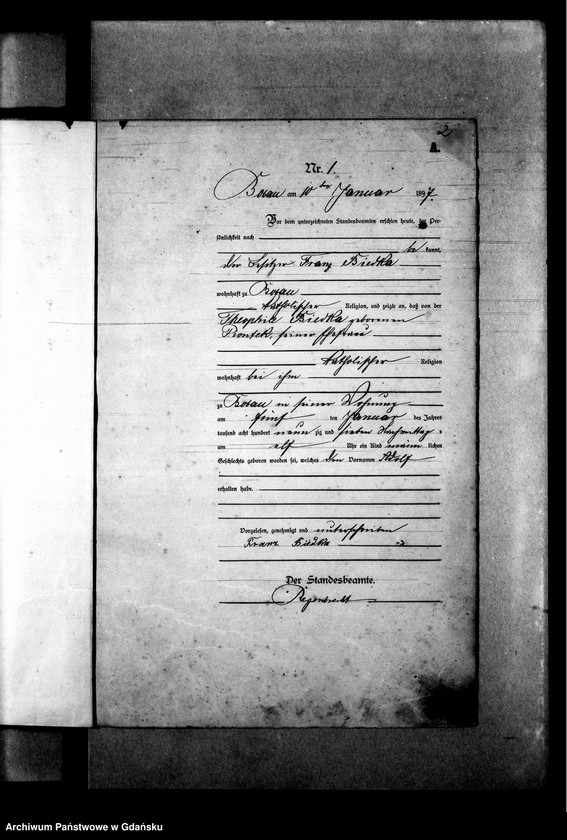 2
A.
Nr. 1.
Borau am 10 ten Januar 1897.
Vor dem unterzeichneten Standesbeamten erschien heute, der Per-
sönlichkeit nach
be kannt,
der Besitzer Franz Biedka
wohnhaft zu Borau
katholischer Religion, und zeigte an, daß von der
Theophia Biedka geborenen
Piontek, seiner Ehefrau
katholischer Religion
wohnhaft bei ihm
zu Borau in seiner Wohnung
am fünf ten Januar des Jahres
tausend acht hundert neun zig und sieben Nachmittag s
um elf Uhr ein Kind männ lichen
Geschlechts geboren worden sei, welches den Vornamen Adolf
erhalten habe.
Vorgelesen, genehmigt und unterschrieben
Franz Biedka
Der Standesbeamte.
Regenbrecht
Archiwum Państwowe w Gdańsku